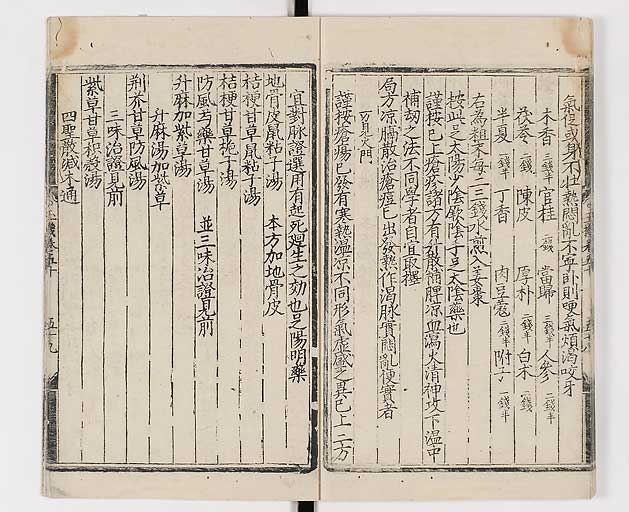 氣促或身不壯熱悶亂不寧卽則哽氣煩渴咬牙
木香三錢半 官桂二錢 當歸三錢半 人參二錢半
茯苓二錢 陳皮 厚朴二錢半 白朮二錢
半夏一錢半 丁香 肉豆蔻二錢半 附子一錢半
右爲粗末每三錢水煎入姜棗
按此足太陽少陰厥陰手足太陰藥也
謹按已上瘡疹諸方有升散補脾凉血瀉火清神攻下溫中
補刼之法不同學者自宜取擇
局方凉膈散治瘡痘已出發熱作渴脉實悶亂便實者
方見火門
謹按瘡瘍已發有寒熱溫凉不同形氣虛盛之異已上二方
宜對脉證選用有起死廻生之効也足陽明藥
地骨皮鼠黏子湯 本方加地骨皮
桔梗甘草鼠黏子湯
桔梗甘草梔子湯
防風芍藥甘草湯 並三味治證見前
升麻加紫草湯
升麻湯加紫草
荆芥甘草防風湯
三味治證見前
紫草甘草枳殼湯
四聖散減木通